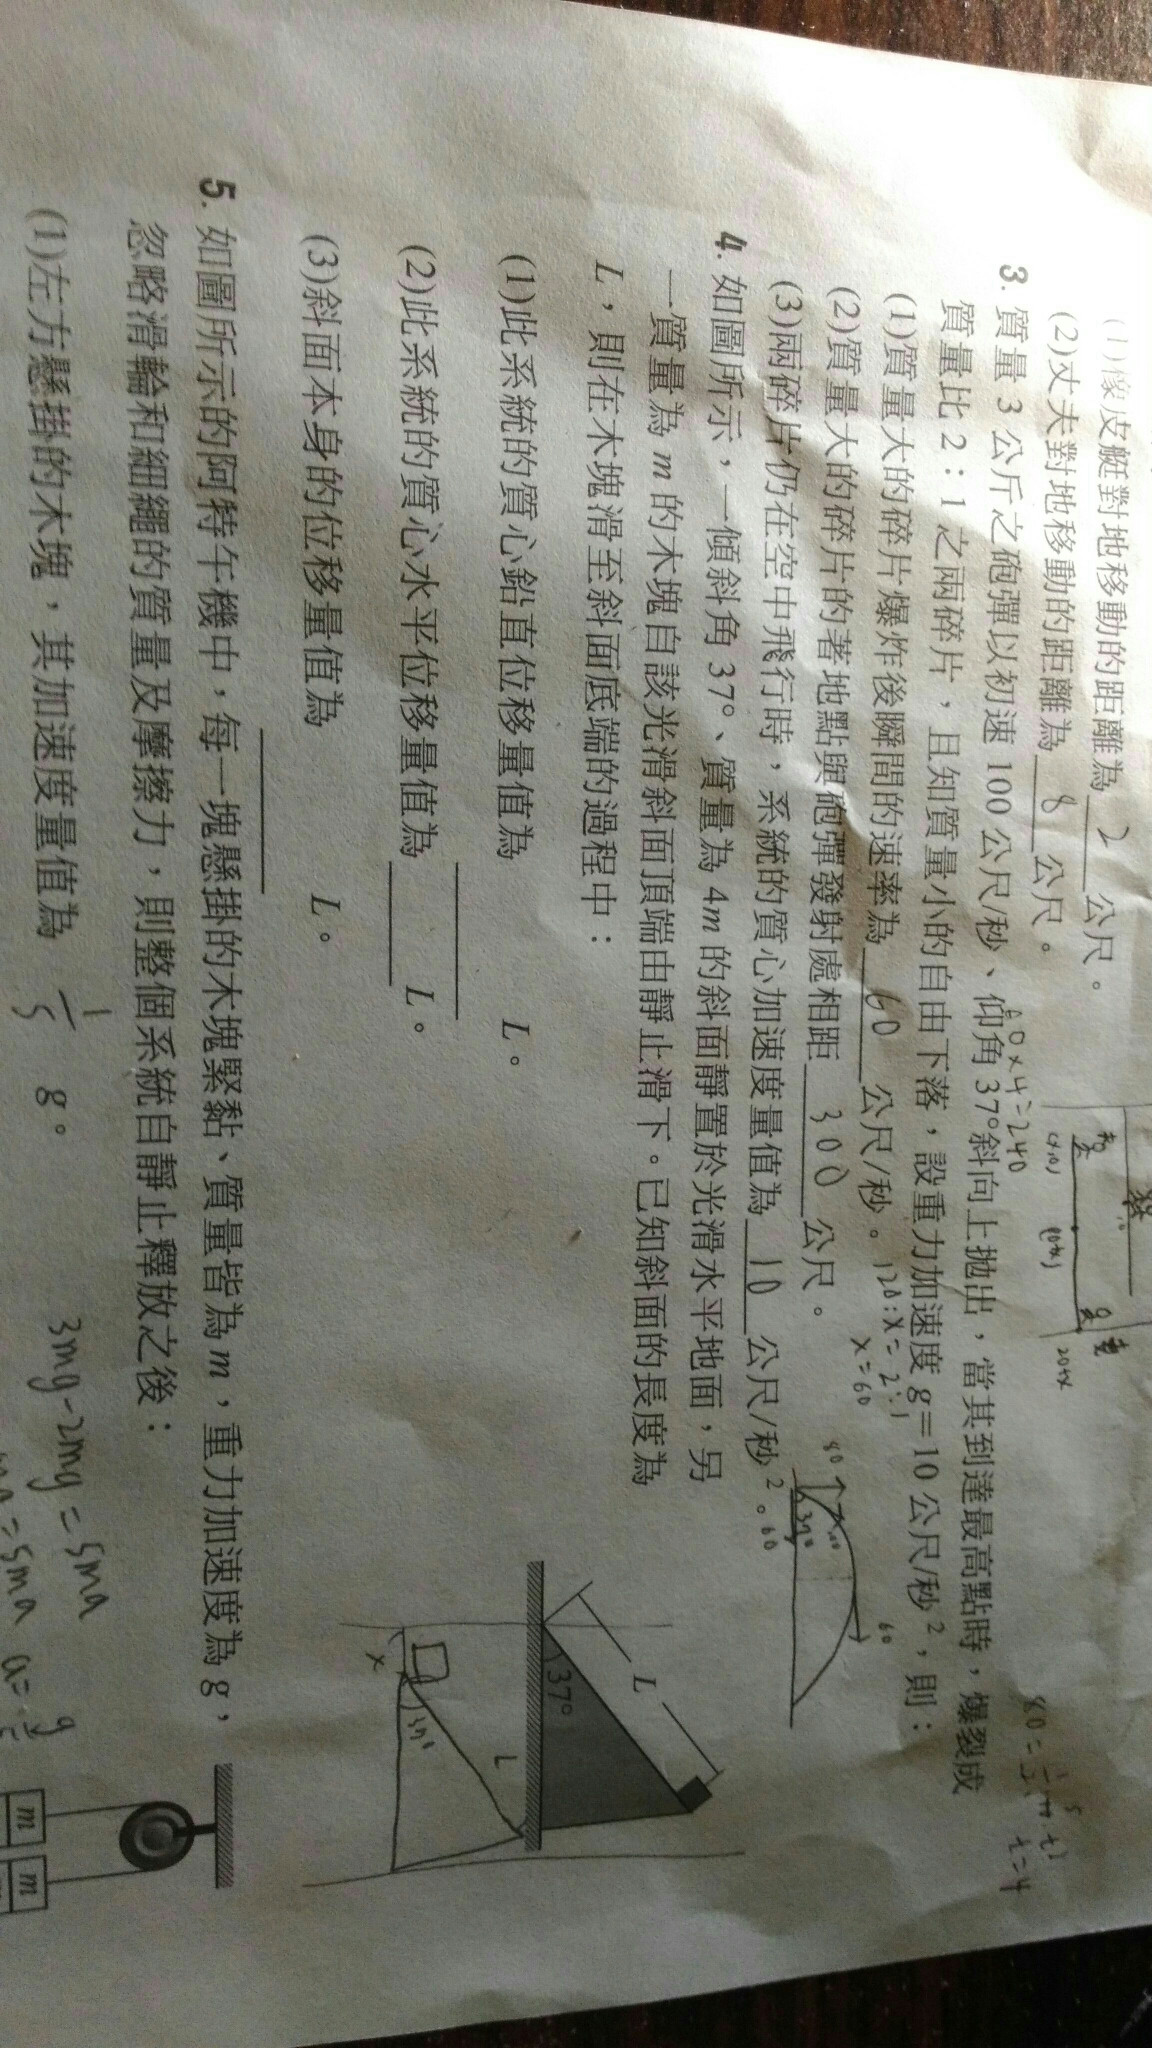 (1)橡皮艇對地移動的距離為 2 公尺。
(2)丈夫對地移動的距離為 8 公尺。
60×4=240
3. 質量 3 公斤之砲彈以初速 100 公尺/秒、仰角 37°斜向上拋出，當其到達最高點時，爆裂成
質量比 2：1 之兩碎片，且知質量小的自由下落，設重力加速度 g＝10 公尺/秒²，則：
(1)質量大的碎片爆炸後瞬間的速率為 60 公尺/秒。
120:x=2:1
x=60
(2)質量大的碎片的著地點與砲彈發射處相距 300 公尺。
(3)兩碎片仍在空中飛行時，系統的質心加速度量值為 10 公尺/秒²。
80
37°
60
60
t=4
4. 如圖所示，一傾斜角 37°、質量為 4m 的斜面靜置於光滑水平地面，另
一質量為 m 的木塊自該光滑斜面頂端由靜止滑下。已知斜面的長度為
L，則在木塊滑至斜面底端的過程中：
(1)此系統的質心鉛直位移量值為 L。
(2)此系統的質心水平位移量值為 L。
(3)斜面本身的位移量值為 L。
L
37°
L
37°
x
5. 如圖所示的阿特午機中，每一塊懸掛的木塊緊黏、質量皆為 m，重力加速度為 g，
忽略滑輪和細繩的質量及摩擦力，則整個系統自靜止釋放之後：
(1)左方懸掛的木塊，其加速度量值為 1/5 g。
3mg-2mg=5ma
=5ma a=g/5
m
m